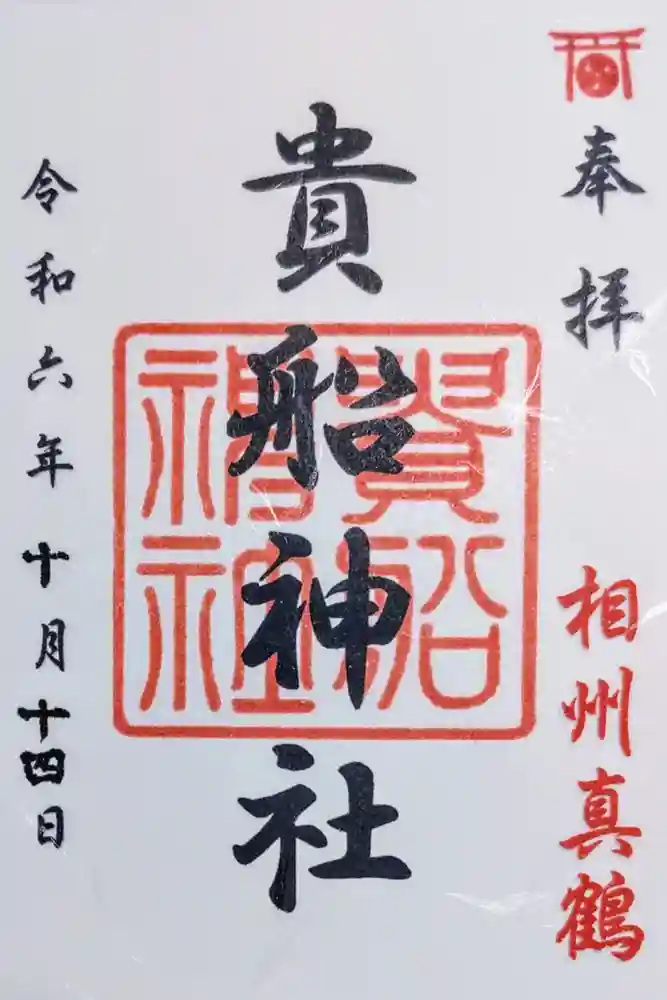 奉拝
相州真鶴
貴船神社
貴船
神社
令和六年十月十四日